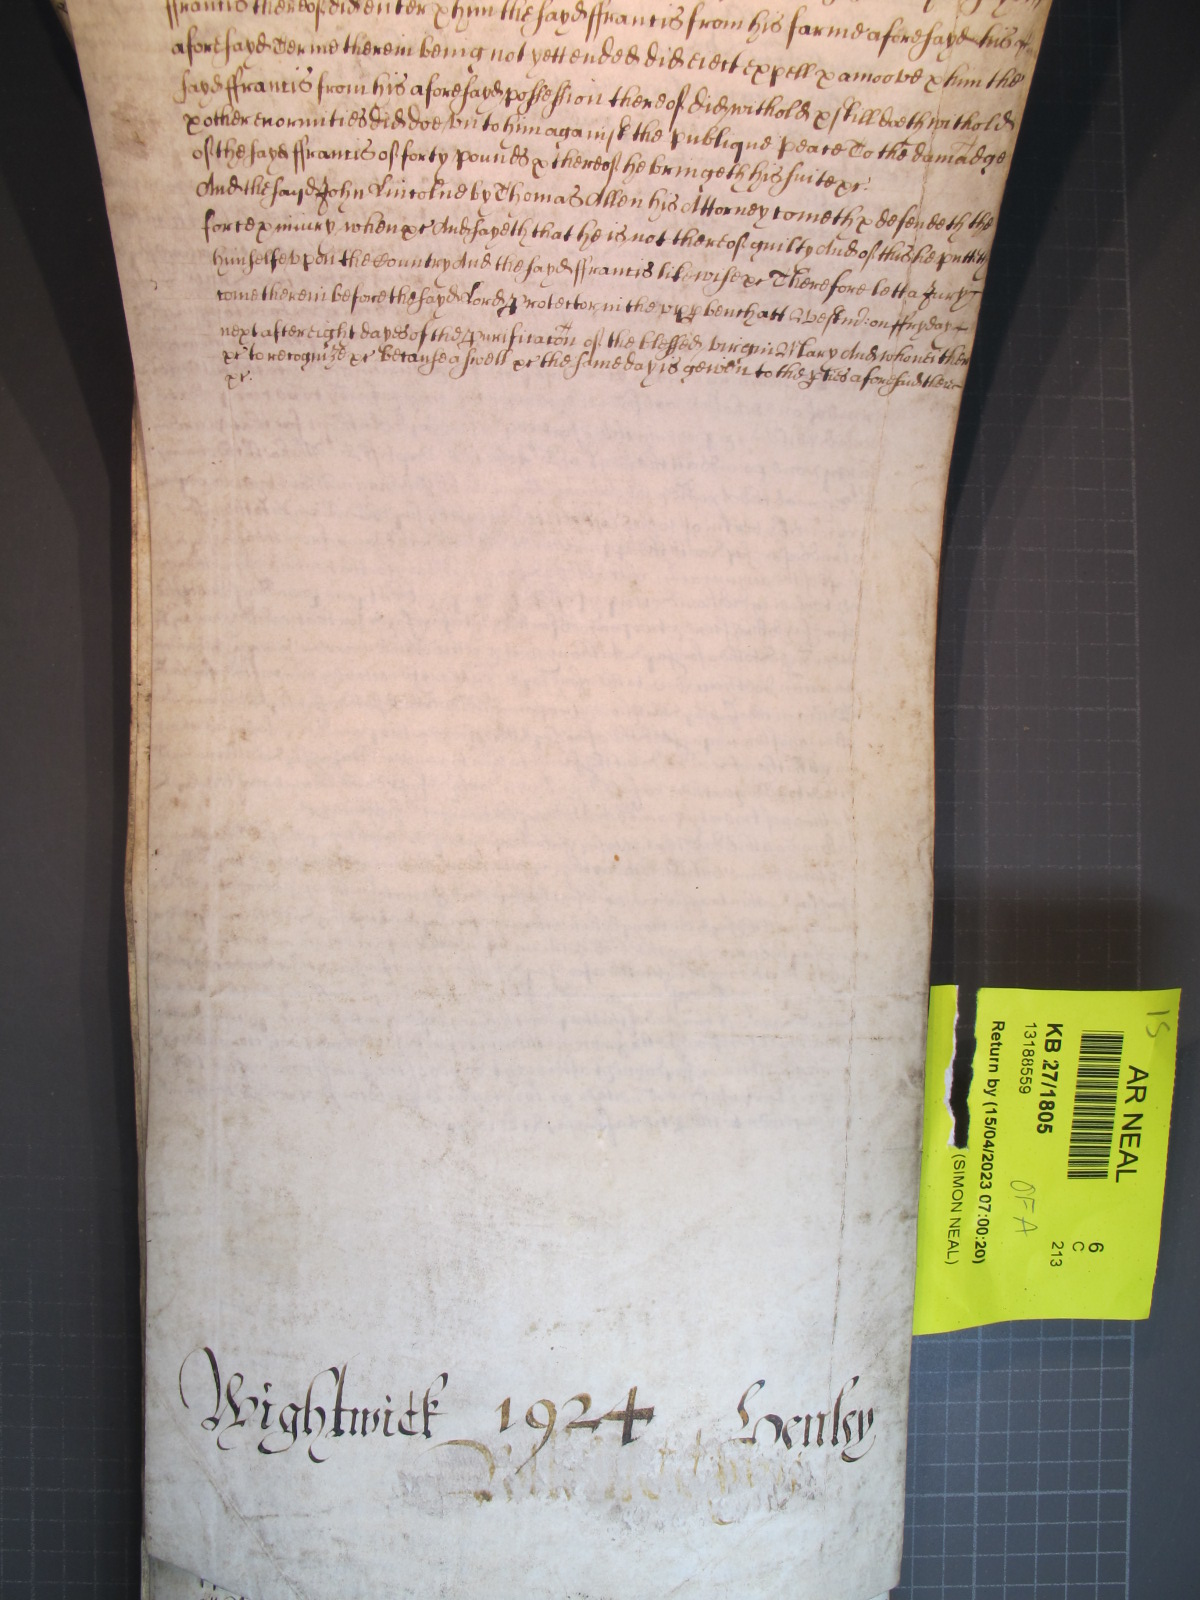 ffrancis thereof did enter & him the sayd ffrancis from his farme aforesayd his
aforesayd Terme therein being not yett ended did eiect expell & amoove & him the
sayd ffrancis from his aforesayd possession thereof did withold & still doeth withold
& other enormities did doe vnto him against the publique peace To the damadge
of the sayd ffrancis of forty pounds & thereof he bringeth his suite &c.
And the sayd John Lincolne by Thomas Allen his Attorney cometh & defendeth the
force & iniury when &c And sayeth that he is not thereof guilty And of this he putteth
himselfe vpon the Country And the sayd ffrancis likewise &c Therefore lett a Jury
come therein before the sayd Lord Protector in the vpp bench att Westm: on ffryday
next after eight dayes of the Purificacon of the blessed virgin Mary And who neither
&c to recognize &c Because aswell &c the same day is geiven to the pties aforesaid there
&c.
Wightwick 1924 Henley
15
AR NEAL
6
C
213
KB 27/1805
13188559
OFA
Return by (15/04/2023 07:00:20)
(SIMON NEAL)